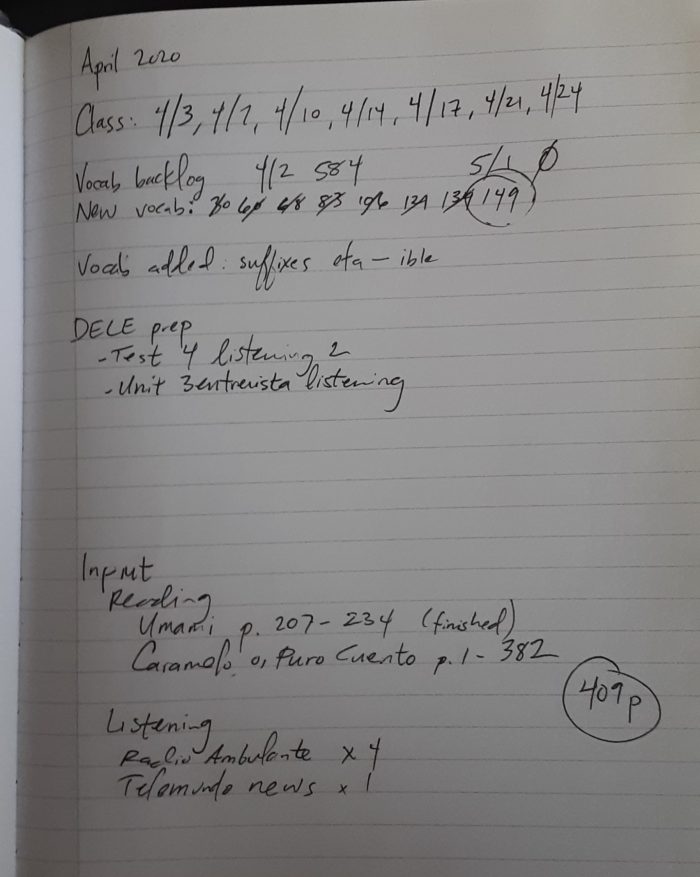 April 2020
Class: 4/3, 4/7, 4/10, 4/14, 4/17, 4/21, 4/24
Vocab backlog 4/2 584 5/1 0
New vocab: 30 68 83 106 134 149
Vocab added: suffixes eta - ible
DELE prep
- Test 4 listening 2
- Unit 3 entrevista listening
Input
Reading
Umami p. 207 - 234 (finished)
Caramelo, o, Puro Cuento p. 1 - 382
409 p
Listening
Radio Ambulante x 4
Telemundo news x 1